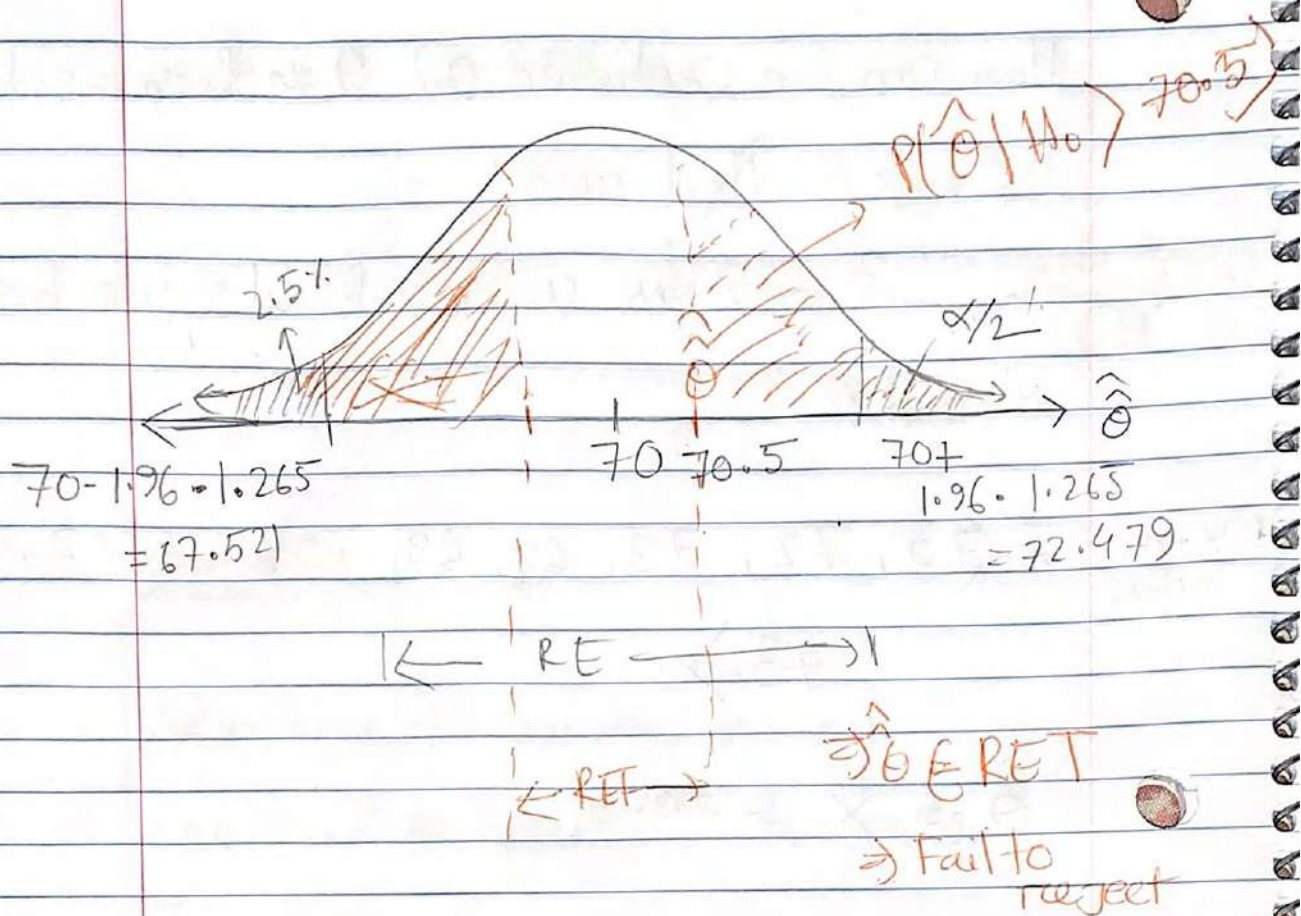 P(θ̂ | H₀ > 70.5)
2.5%
α/2 %
θ̂
θ̂̂
70 70.5
70 - 1.96 · 1.265
= 67.521
70+
1.96 · 1.265
= 72.479
RE
RET
⇒ θ̂̂ ∈ RET
⇒ Fail to
reject